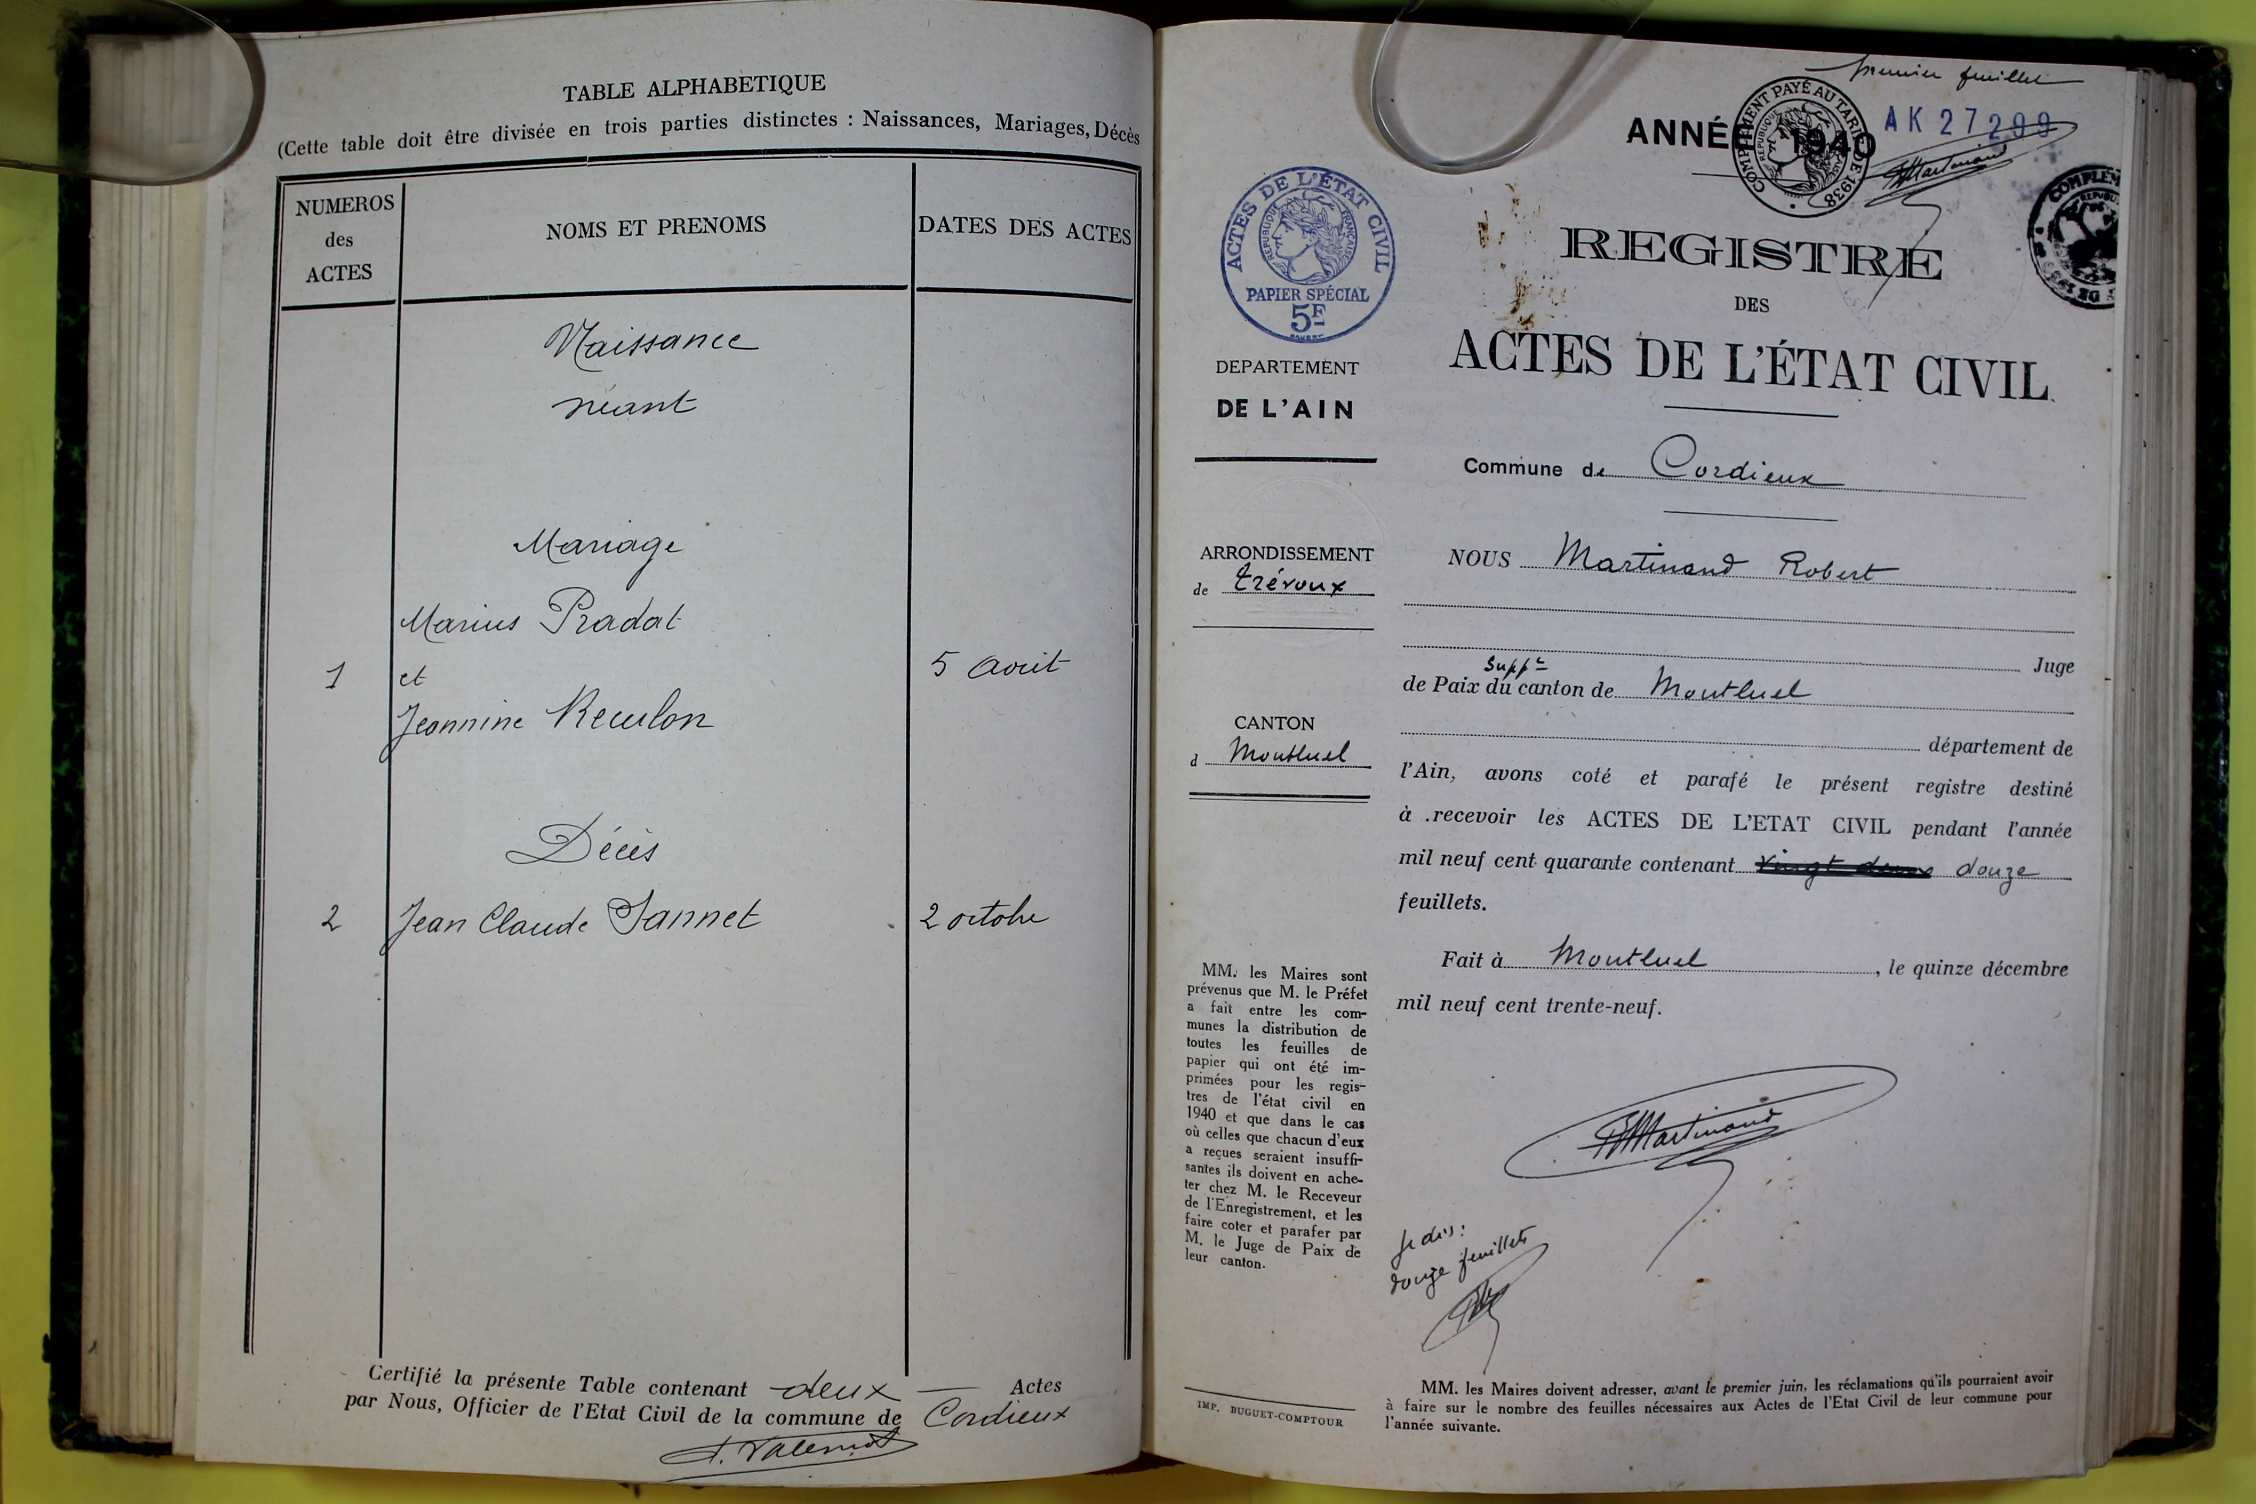 TABLE ALPHABETIQUE
(Cette table doit être divisée en trois parties distinctes : Naissances, Mariages, Décès
NUMEROS
des
ACTES
NOMS ET PRENOMS
DATES DES ACTES
Naissance
néant
Mariage
Marius Pradat
1 et 5 avril
Jeannine Reculon
Décès
2 Jean Claude Jannet 2 octobre
Certifié la présente Table contenant deux Actes
par Nous, Officier de l'Etat Civil de la commune de Cordieux
premier feuillet
ANNÉE 1940
COMPLEMENT PAYÉ AU TARIF DE 1938
AK 27299
Martinand
ACTES DE L'ÉTAT CIVIL
RÉPUBLIQUE FRANÇAISE
PAPIER SPÉCIAL
5F
DEPARTEMENT
DE L'AIN
ARRONDISSEMENT
de trévoux
CANTON
d Montluel
MM. les Maires sont
prévenus que M. le Préfet
a fait entre les com-
munes la distribution de
toutes les feuilles de
papier qui ont été im-
primées pour les regis-
tres de l'état civil en
1940 et que dans le cas
où celles que chacun d'eux
a reçues seraient insuffi-
santes ils doivent en ache-
ter chez M. le Receveur
de l'Enregistrement, et les
faire coter et parafer par
M. le Juge de Paix de
leur canton.
IMP. BUGUET-COMPTOUR
REGISTRE
DES
ACTES DE L'ÉTAT CIVIL
Commune de Cordieux
NOUS Martinand Robert
Juge
suppt
de Paix du canton de Montluel
département de
l'Ain, avons coté et parafé le présent registre destiné
à .recevoir les ACTES DE L'ETAT CIVIL pendant l'année
mil neuf cent quarante contenant vingt deux douze
feuillets.
Fait à Montluel, le quinze décembre
mil neuf cent trente-neuf.
Martinand
Je dis :
douze feuillets
MM. les Maires doivent adresser, avant le premier juin, les réclamations qu'ils pourraient avoir
à faire sur le nombre des feuilles nécessaires aux Actes de l'Etat Civil de leur commune pour
l'année suivante.